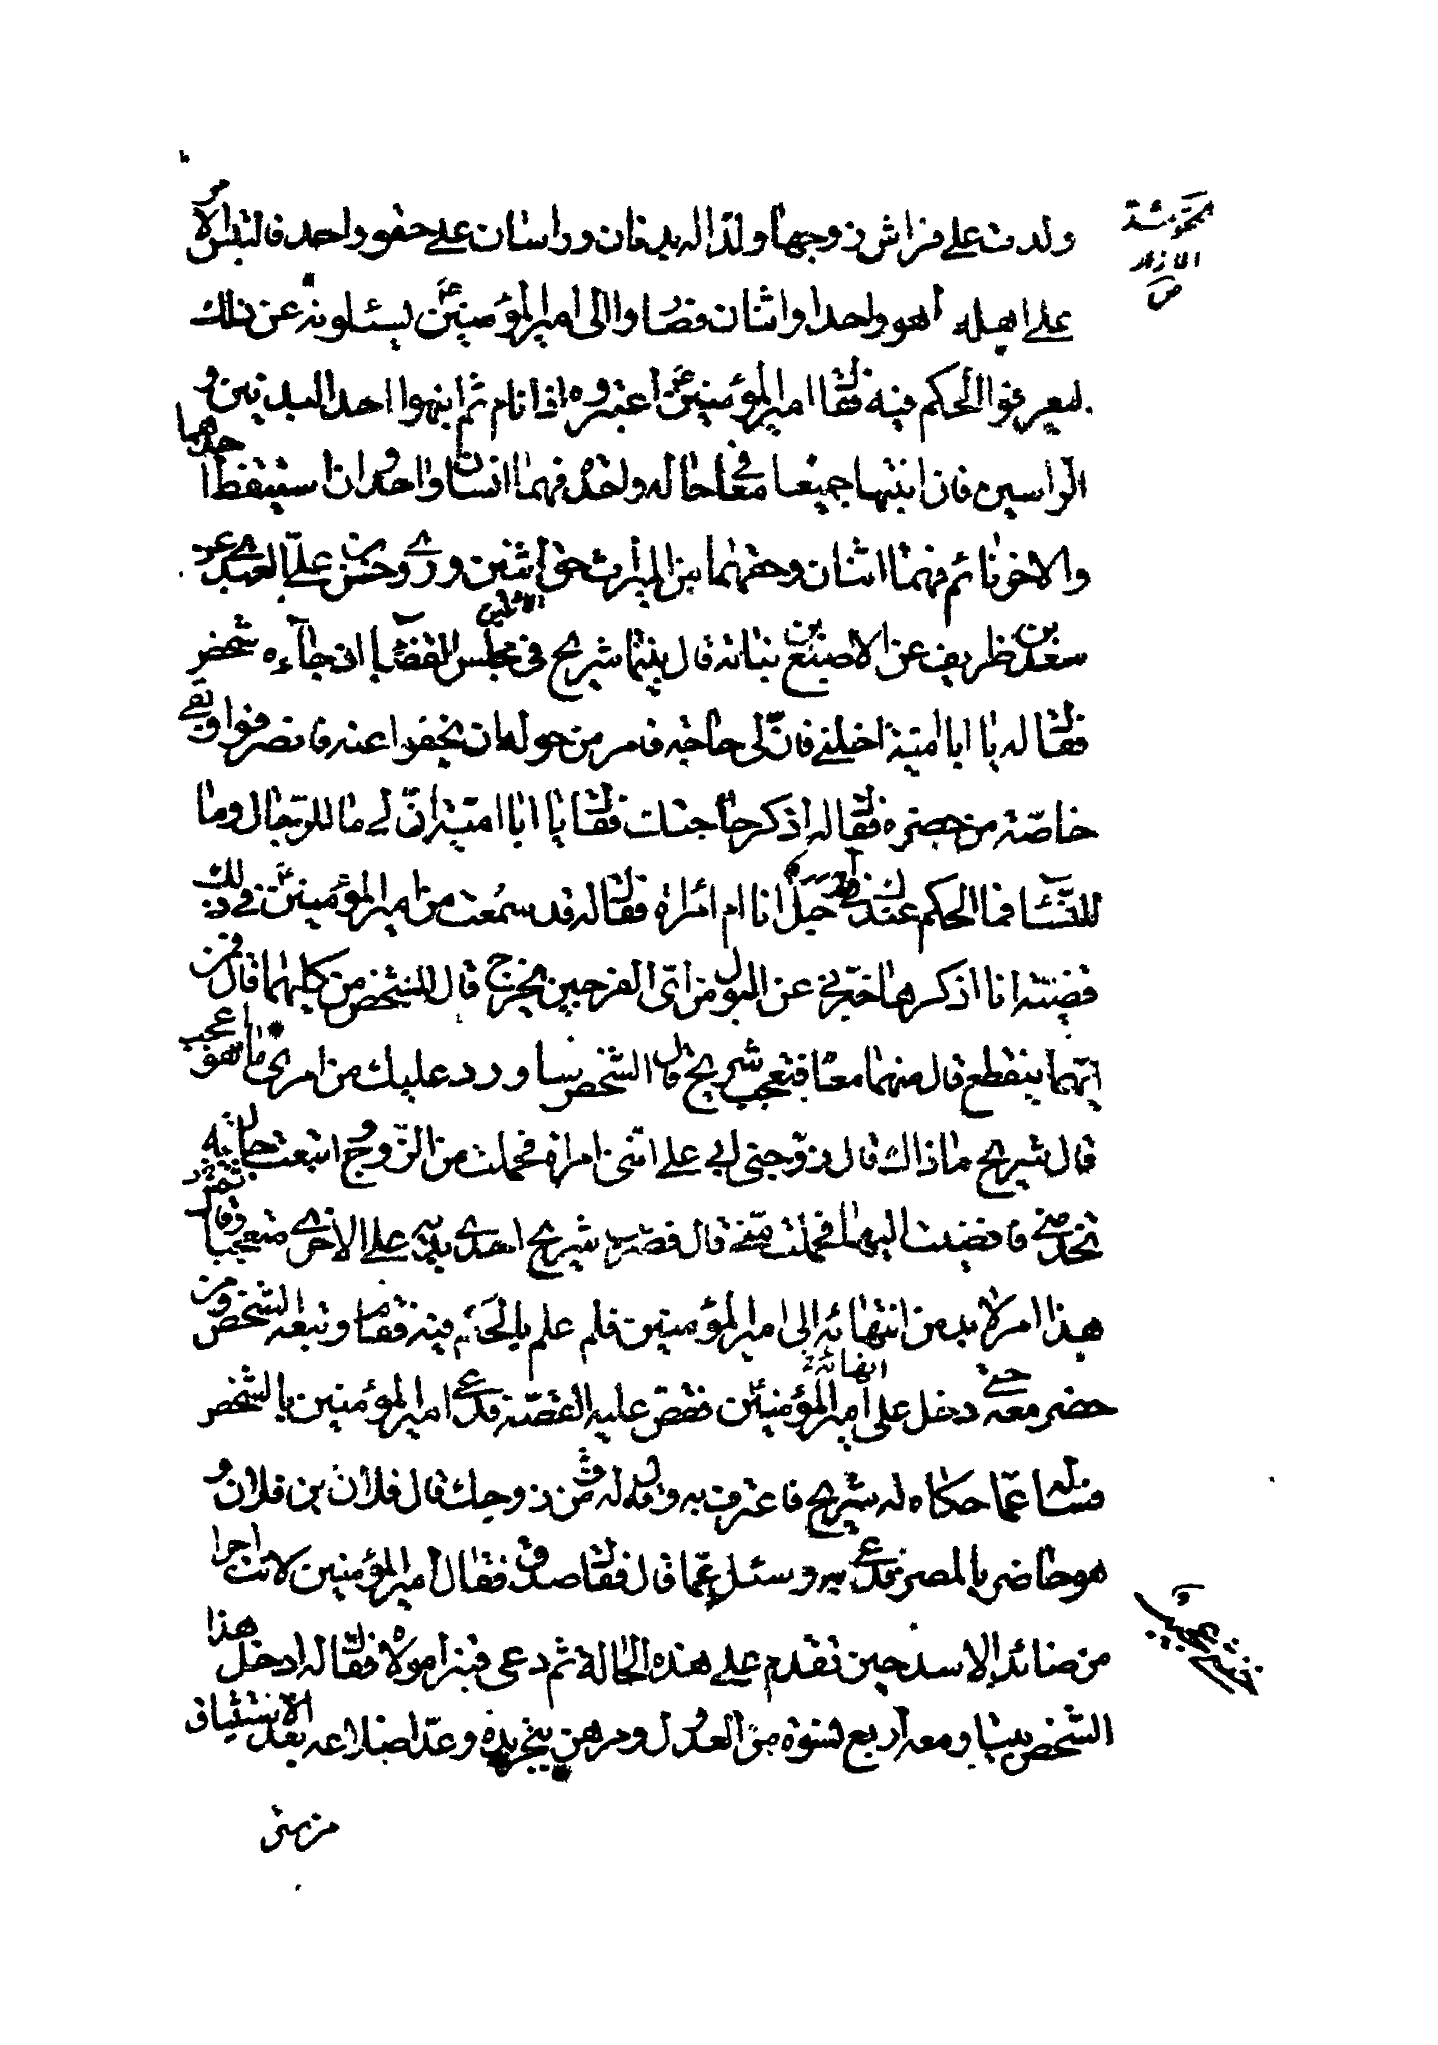 ولدت على فراش زوجها ولدا له بدنان وراسان على حقو واحد فالتبس الامر
على اهله أهو واحد او اثنان فصاروا الى امير المؤمنين ع يسئلونه عن ذلك
ليعرفوا الحكم فيه فقال امير المؤمنين ع اعتبروه اذا نام ثم انبهوا احد البدنين و
الراسين فان انتبها جميعا معا في حالة واحدة فهما انسان واحد وان استيقظ احدهما
والاخر نائم فهما اثنان وحقهما من الميراث حق اثنين وروى حسن بن على العبدى عن
سعد بن طريف عن الاصبغ بن نباته قال بينما شريح في مجلس القضاء اذ جاءه شخص
فقال له يا ابا امية اخلنى فان لى حاجة فامر من حوله ان يخفوا عنه فانصرفوا وبقى
خاصة من حضره فقال له اذكر حاجتك فقال يا ابا امية ان لى ما للرجال وما
للنساء فما الحكم عندك في أرجل انا ام امراة فقال له قد سمعت من امير المؤمنين ع في ذلك
قضية انا اذكرها خبرنى عن البول من اى الفرجين يخرج قال الشخص من كليهما قال فمن
ايهما ينقطع قال منهما معا فتعجب شريح قال الشخص ساورد عليك من امرى ما هو اعجب
قال شريح ما ذاك قال زوجنى ابى على اننى امراة فحملت من الزوج وابتعت جارية
تخدمنى فافضيت اليها فحملت منى قال فضرب شريح احدى يديه على الاخرى متعجبا وقال
هذا امر لا بد من انهائه الى امير المؤمنين فلا علم لى بالحكم فيه فقام وتبعه الشخص ومن
حضر معه حتى دخل على امير المؤمنين ع فقص عليه القصة فدعى امير المؤمنين بالشخص
فسئله عما حكاه له شريح فاعترف به وقال له فمن زوجك قال فلان بن فلان و
هو حاضر بالمصر فدعى به وسئل عما قال فقال صدق فقال امير المؤمنين لانت اجرا
من صائد الاسد حين تقدم على هذه الحالة ثم دعى قنبرا مولاه فقال له ادخل هذا
الشخص بيتا ومعه اربع نسوة من العدول ومرهن بتجريده وعد اضلاعه بعد الاستيثاق